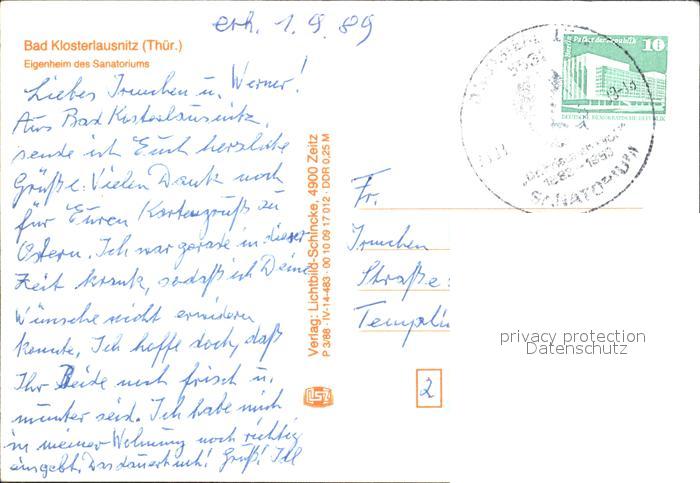 erh. 1.9.89
Bad Klosterlausnitz (Thür.)
Eigenheim des Sanatoriums
Liebes Irmchen u. Werner!
Aus Bad Klosterlausnitz,
sende ich Euch herzliche
Grüße. Vielen Dank noch
für Euren Kartengruß zu
Ostern. Ich war gerade in dieser
Zeit krank, sodaß ich Deine
Wünsche nicht erwidern
konnte. Ich hoffe doch, daß
Ihr Beide noch frisch u.
munter seid. Ich habe mich
in meiner Wohnung noch richtig
eingebt. Das dauert noch! Gruß!
Verlag: Lichtbild-Schincke, 4900 Zeitz
P 3/88 · IV-14-483 · 00 10 09 17 012 · DDR 0,25 M
Berlin Palast der Republik
10
DEUTSCHE DEMOKRATISCHE REPUBLIK
SANATORIUM
Fr.
Irmchen
Straße:
Templin
2
privacy protection
Datenschutz